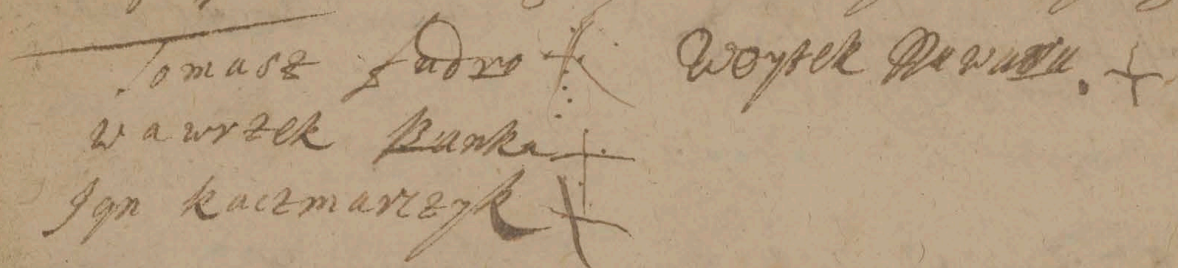 Tomasz Fudro +
Woytek +
Wawrzek Banka +
Jan Kaczmarczyk +